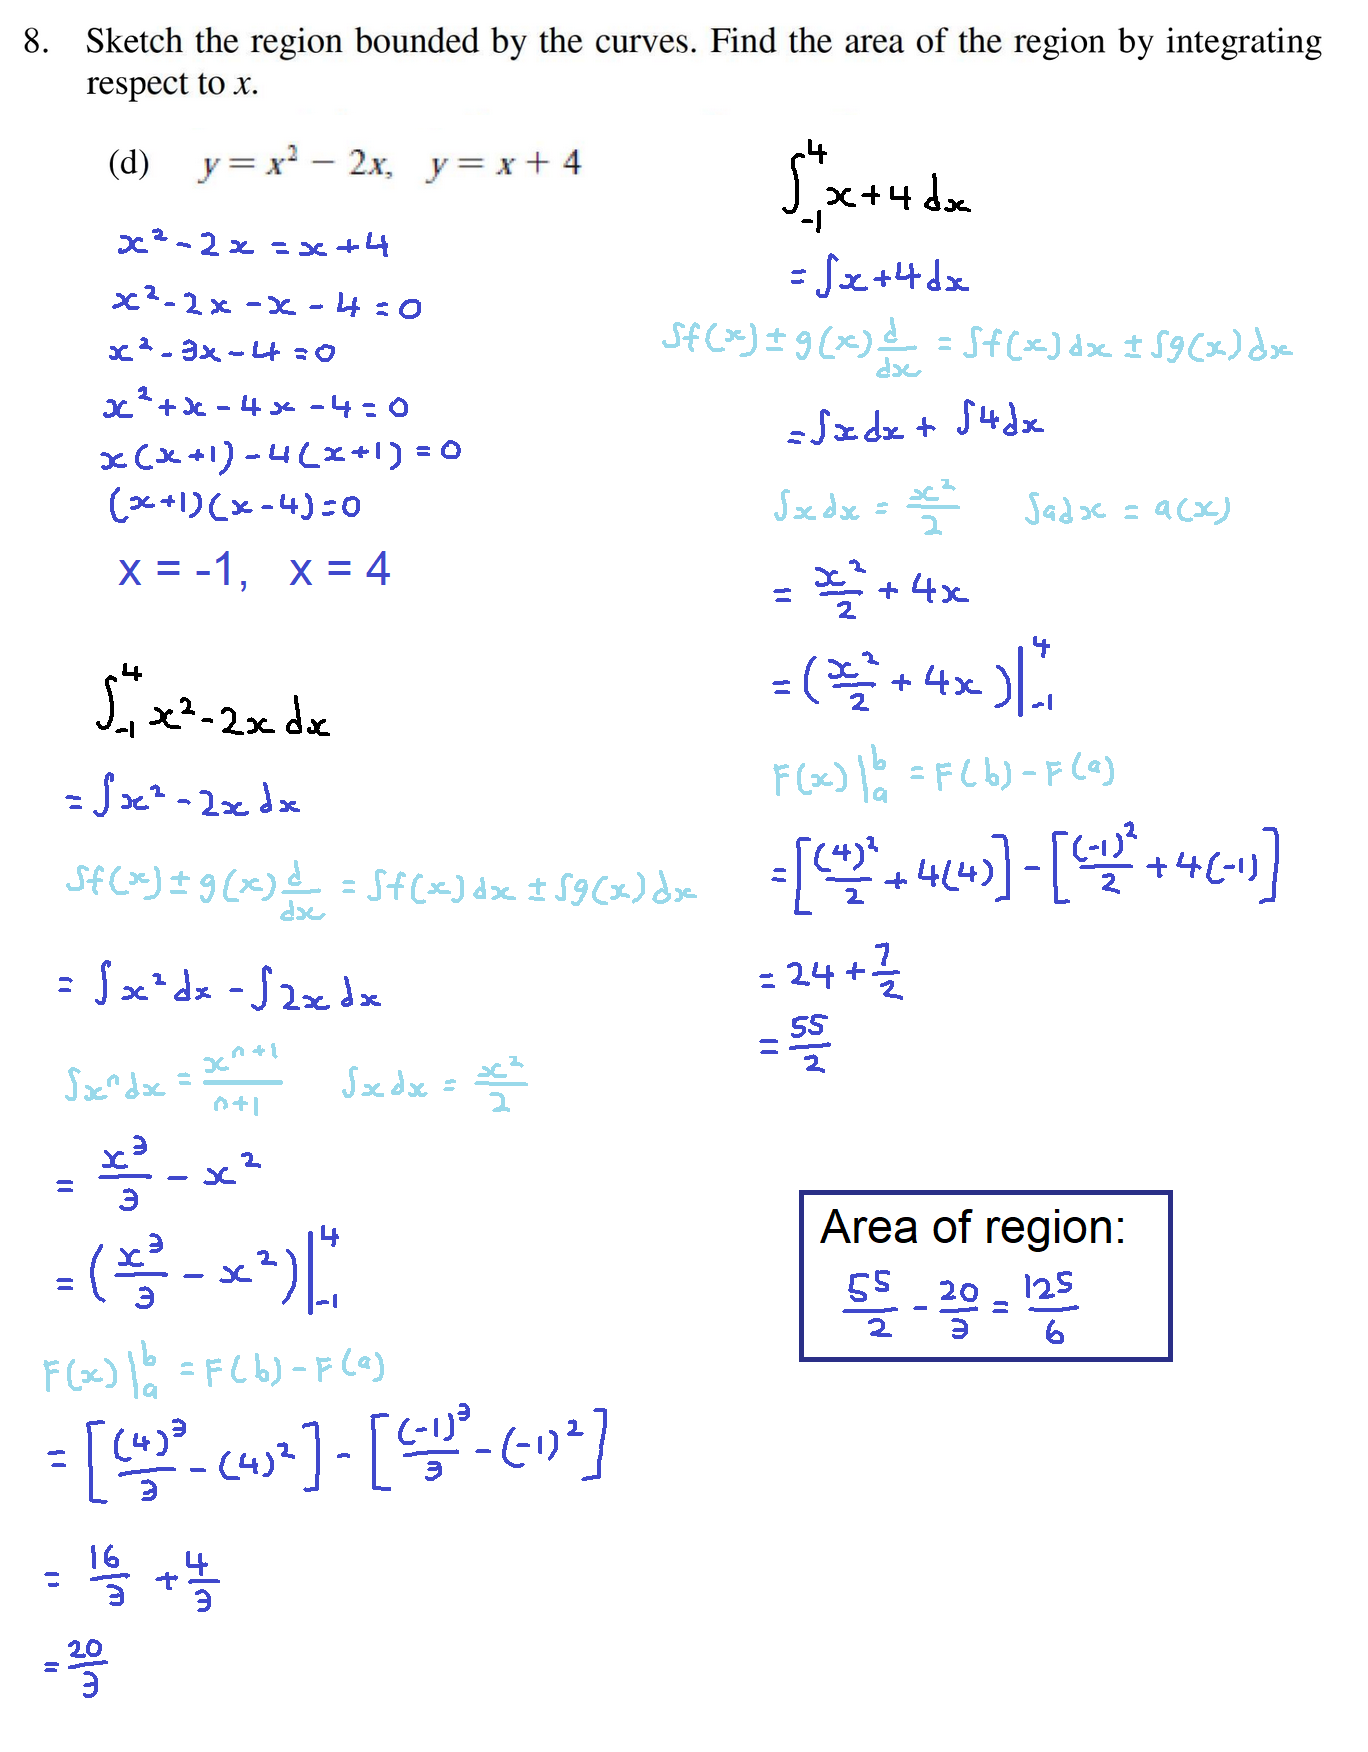 8. Sketch the region bounded by the curves. Find the area of the region by integrating
respect to x.
(d) y = x² − 2x, y = x + 4
x² - 2x = x + 4
x² - 2x - x - 4 = 0
x² - 3x - 4 = 0
x² + x - 4x - 4 = 0
x(x+1) - 4(x+1) = 0
(x+1)(x-4) = 0
x = -1, x = 4
∫₋₁⁴ x² - 2x dx
= ∫x² - 2x dx
∫f(x) ± g(x) d/dx = ∫f(x)dx ± ∫g(x)dx
= ∫x² dx - ∫2x dx
∫xⁿdx = xⁿ⁺¹/n+1 ∫x dx = x²/2
= x³/3 - x²
= (x³/3 - x²)|₋₁⁴
F(x)|ₐᵇ = F(b) - F(a)
= [(4)³/3 - (4)²] - [(-1)³/3 - (-1)²]
= 16/3 + 4/3
= 20/3
∫₋₁⁴ x + 4 dx
= ∫x + 4 dx
∫f(x) ± g(x) d/dx = ∫f(x)dx ± ∫g(x)dx
= ∫x dx + ∫4dx
∫x dx = x²/2 ∫adx = a(x)
= x²/2 + 4x
= (x²/2 + 4x)|₋₁⁴
F(x)|ₐᵇ = F(b) - F(a)
= [(4)²/2 + 4(4)] - [(-1)²/2 + 4(-1)]
= 24 + 7/2
= 55/2
Area of region:
55/2 - 20/3 = 125/6